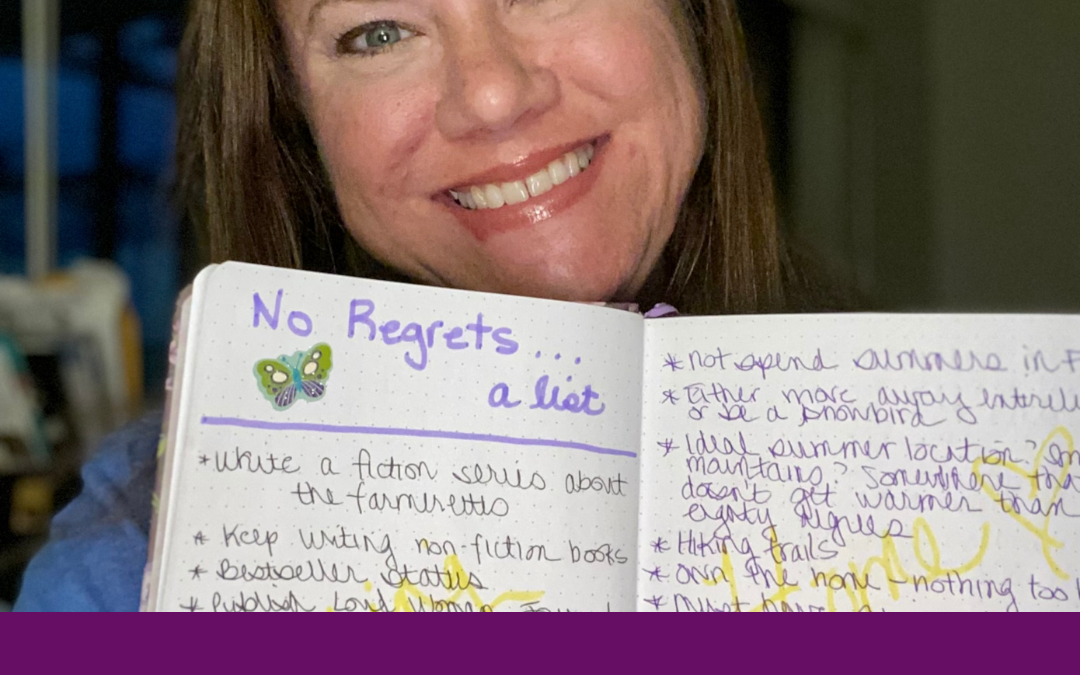 No Regrets...
a list
*Write a fiction series about
the farmerettes
* Keep writing non-fiction books
* Bestseller Status
* Publish Loud Woman
*not spend summers in F
* Either move away entirely
or be a snowbird
* Ideal summer location?
mountains? Somewhere that
doesn't get warmer than
eighty degrees
* Hiking trails
* own the home - nothing too
* Must have
Home